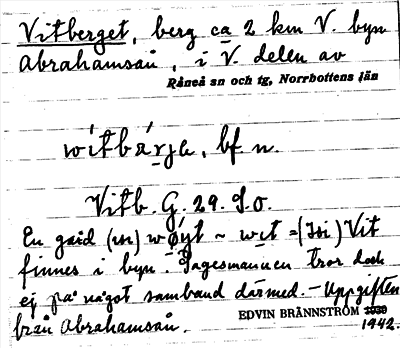 Vitberget, berg ca 2 km V. byn
Abrahamsån, i V. delen av
Råneå sn och tg, Norrbottens län
wítbárjə, bf. n.
Vitb. G. 29. S.O.
En gård (un) ~ wit = (Isi) Vit
finnes i byn. Sagesmannen tror dock
ej på något samband därmed. – Uppgiften
från Abrahamsån.
EDVIN BRÄNNSTRÖM 1930
1942.